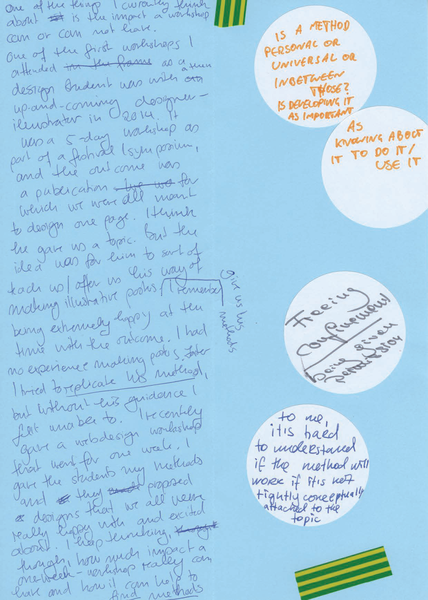 One of the things I currently think
about is the impact a workshop
can or can not have.
One of the first workshops I
attended in the frame as a
design student was with an
up-and-coming designer-
illustrator in 2014. It
was a 5-day workshop as
part of a festival/symposium,
and the outcome was
a publication for
which we were all meant
to design one page. I think
he gave us a topic. but the
idea was for him to sort of
teach us/offer us his way of
making illustrative posters. I remember
being extremely happy at the
time with the outcome. I had
no experience making posters. Later
I tried to replicate his method,
but without his guidance I
felt unable to. I recently
gave a webdesign workshop
that went for one week. I
gave the students my methods
and they proposed
designs that we all were
really happy with and excited
about. I keep thinking
though, how much impact a
one-week-workshop really can
have and how it can help to
find methods
give us his
methods
IS A METHOD
PERSONAL OR
UNIVERSAL OR
INBETWEEN
THOSE?
IS DEVELOPING IT
AS IMPORTANT
AS
KNOWING ABOUT
IT TO DO IT/
USE IT
Freeing
Confinement/
being given
permission
to me,
it's hard
to understand
if the method will
work if it's not
tightly conceptually
attached to the
topic